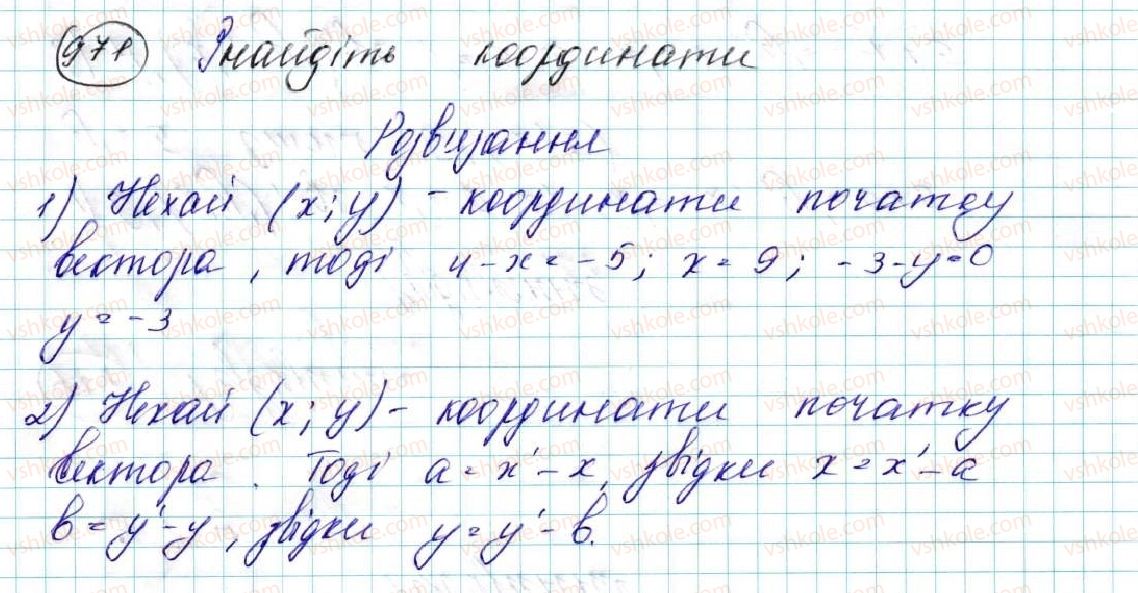 971 Знайдіть координати
Розв'язання
1) Нехай (x; y) - координати початку
вектора, тоді 4 - x = -5; x = 9; -3 - y = 0
y = -3
2) Нехай (x; y) - координати початку
вектора. Тоді a = x' - x, звідки x = x' - a
b = y' - y, звідки y = y' - b.
vshkole.com